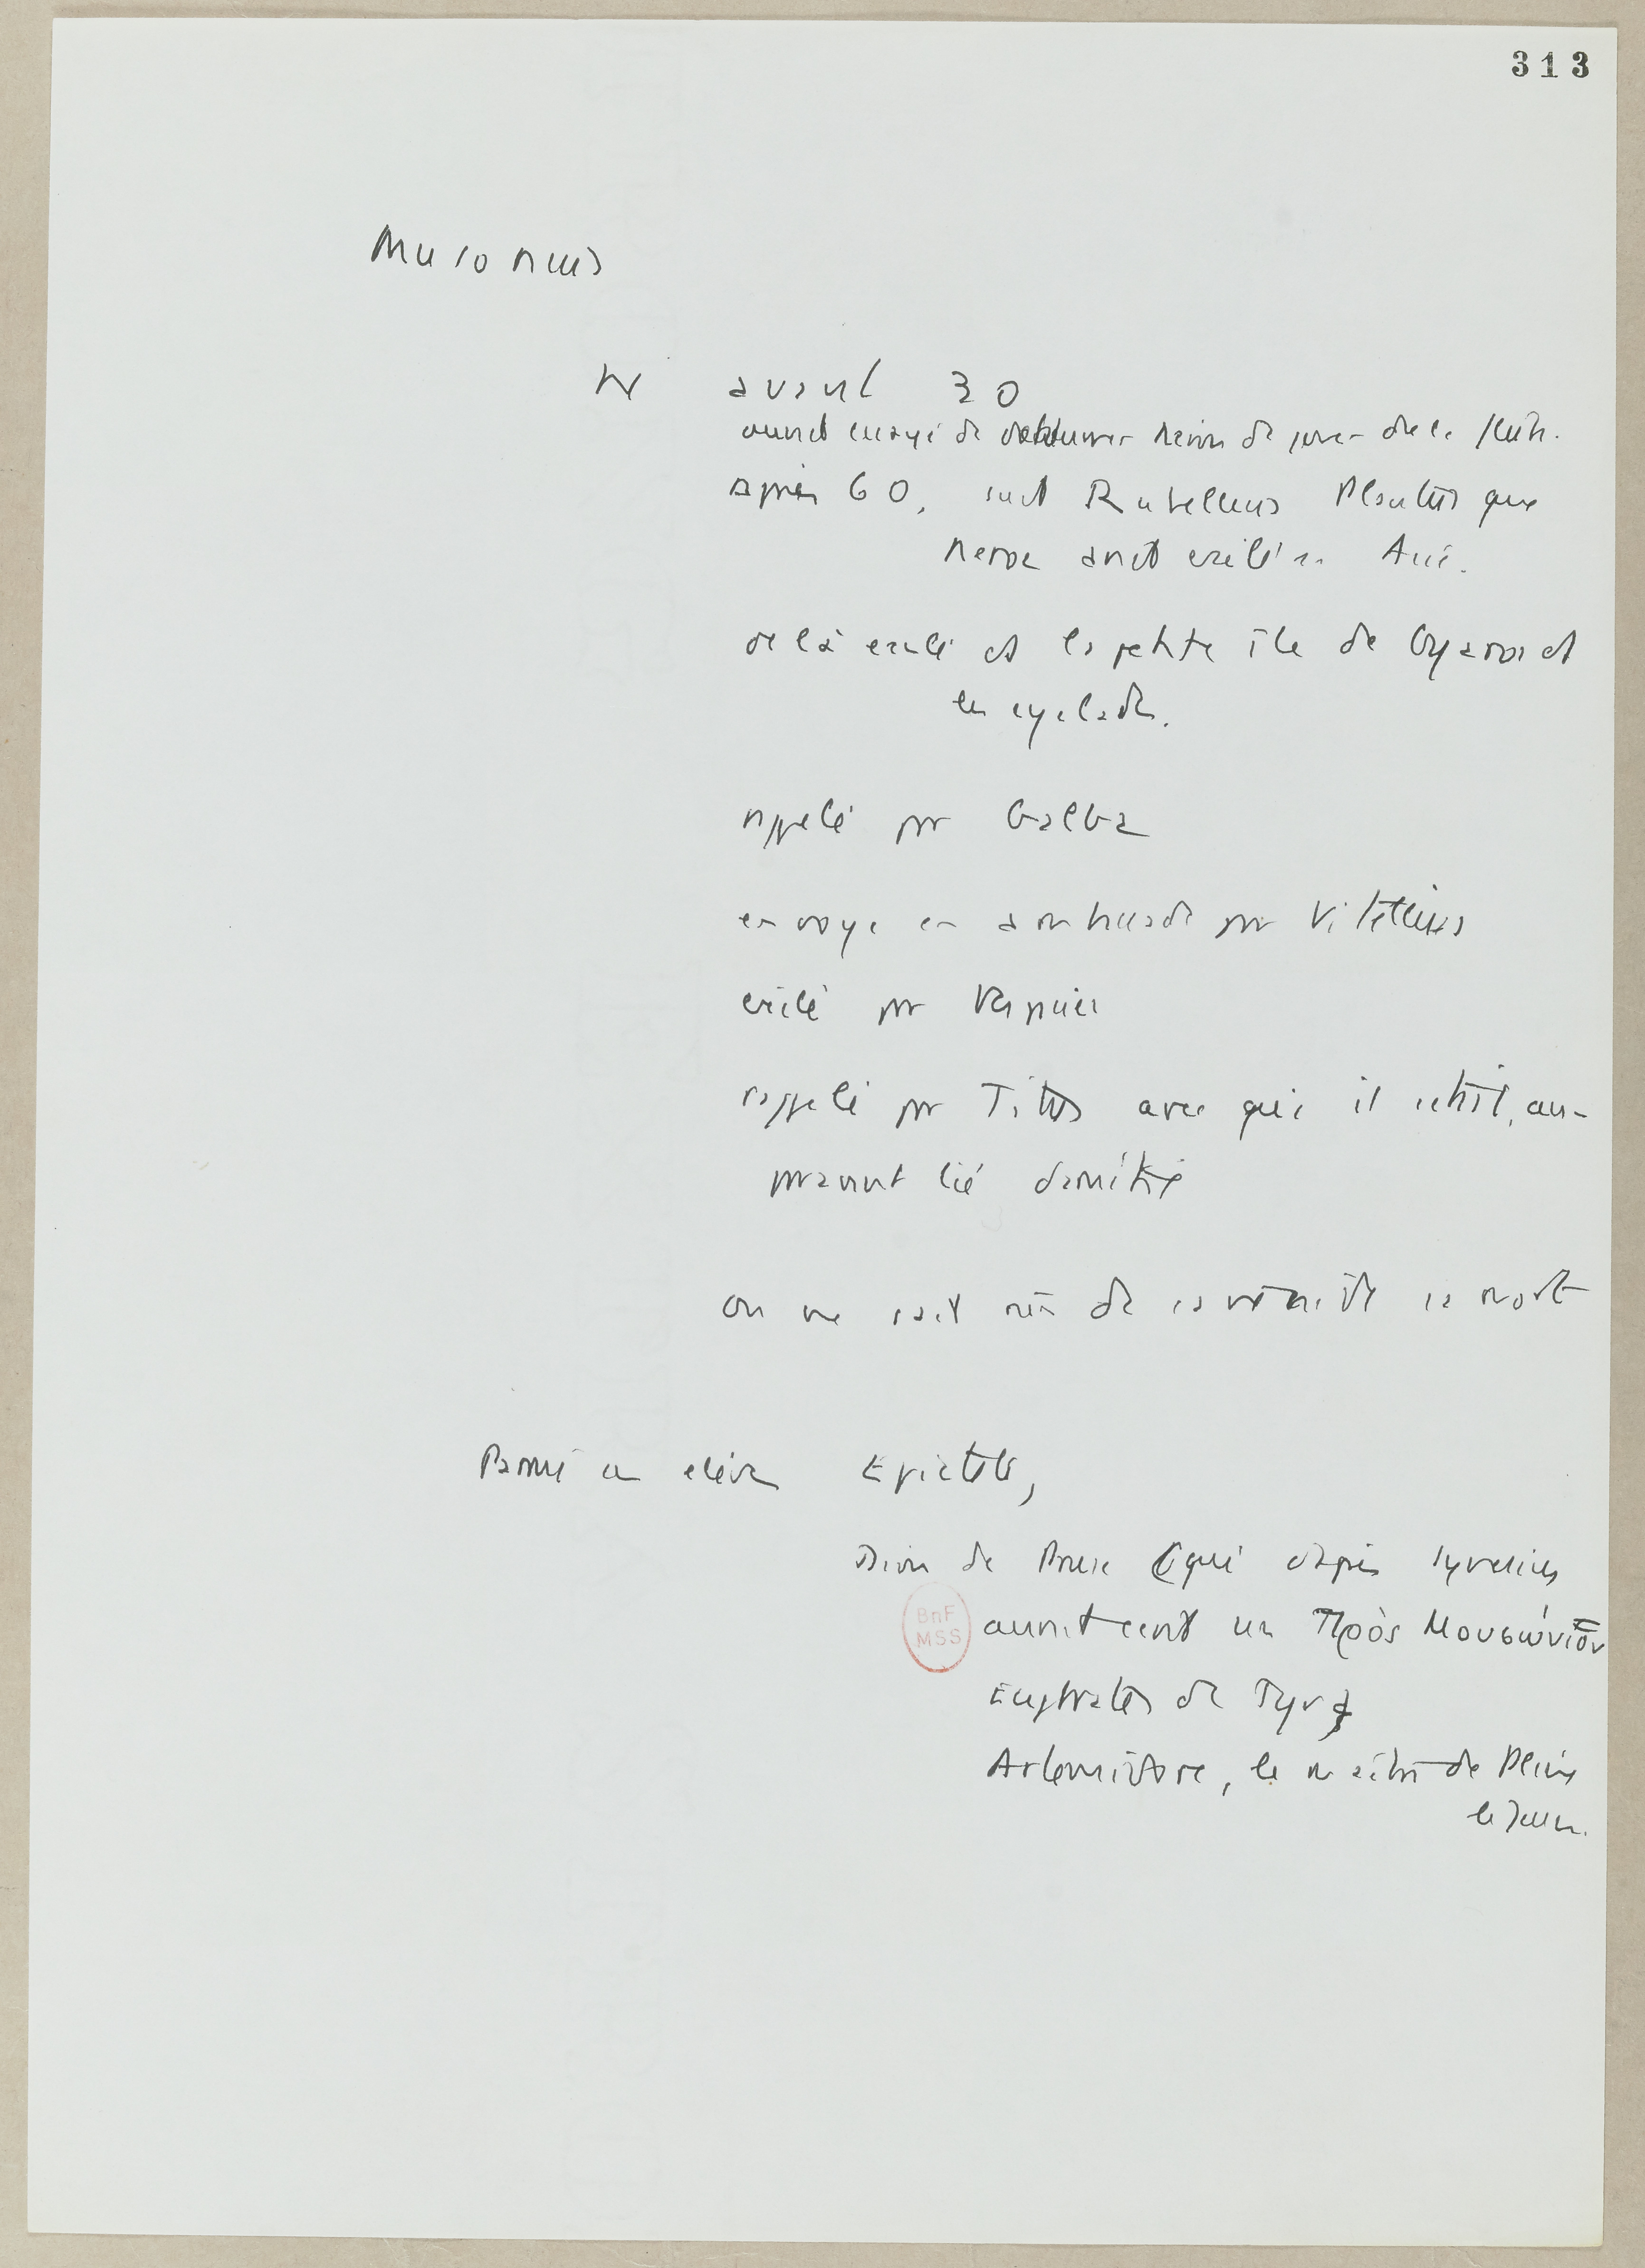 313
Musonius
Né avant 30
avait essayé de détourner Néron de jouer de la
après 60, suit Rubellius Plautus que
Néron avait exilé en Asie.
de là exilé ds la petite île de Gyaros ds
les cyclades.
rappelé par Galba
envoyé en ambassade par Vitellius
exilé par Vespasien
rappelé par Titus avec qui il était, au-
paravant lié d'amitié
on ne sait rien de sa vie ni de sa mort
Parmi ses élèves Epictète,
Dion de Pruse (qui d'après Synesius
aurait écrit un Πρὸς Μουσώνιον
Euphratès de Tyr
Artémidore, le maître de Pline
le Jeune.
BnF
MSS